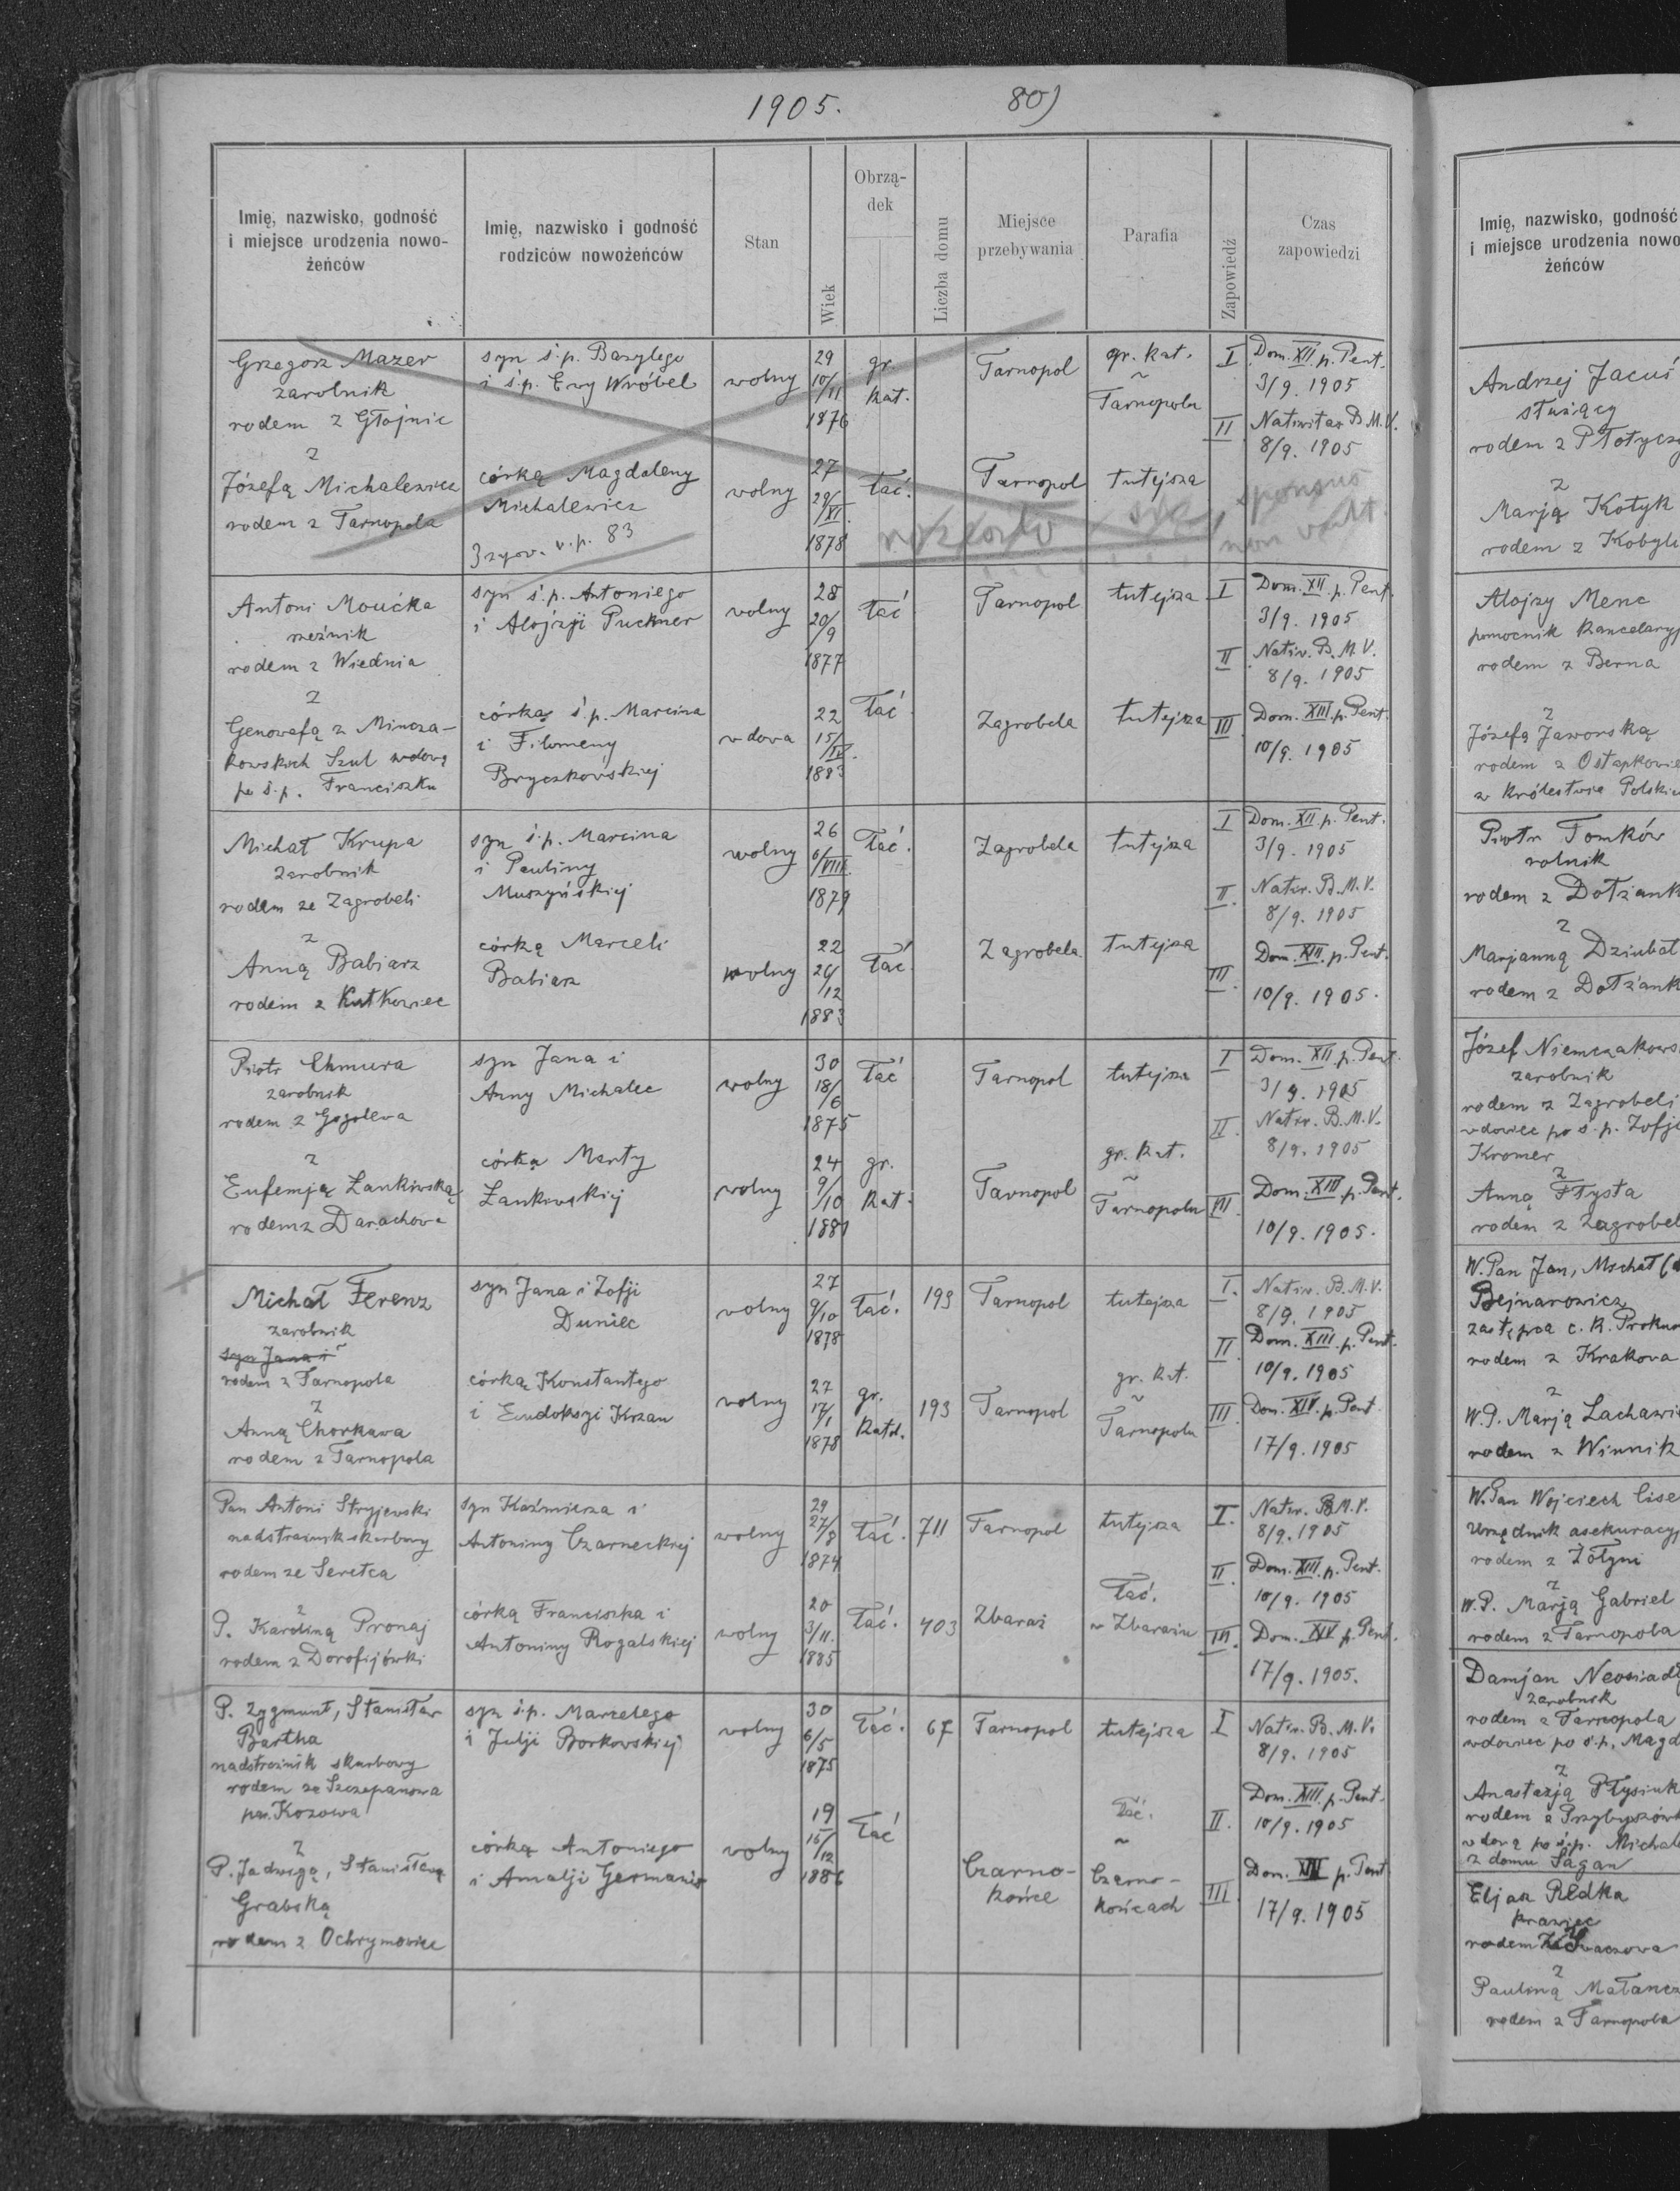 1905.
80)
Imię, nazwisko, godność
i miejsce urodzenia nowo-
żeńców
Imię, nazwisko i godność
rodziców nowożeńców
Stan
Wiek
Obrzą-
dek
Liczba domu
Miejsce
przebywania
Parafia
Zapowiedź
Czas
zapowiedzi
Grzegorz Mazer
zarobnik
rodem z
z
Józefą Michalewicz
rodem z Tarnopola
syn ś.p. Bazylego
i ś.p. Ewy Wróbel
córką Magdaleny
Michalewicz
v.p. 83
wolny
wolny
29
10/11
1876
27
29/XI.
1878
gr.
kat.
łać.
Tarnopol
Tarnopol
gr. kat.
~
Tarnopolu
tutejsza
się sponsus
non vult
I Dom. XII. p. Pent.
3/9. 1905
II Nativitas B.M.V.
8/9. 1905
Antoni Moućka
rzeźnik
rodem z Wiednia
z
Genowefą z Mincza-
kowskich Szul wdową
po ś.p. Franciszku
syn ś.p. Antoniego
i Alojzji Puckner
córką ś.p. Marcina
i Filomeny
Bryczkowskiej
wolny
wdowa
28
20/9
1877
22
15/IV.
1883
łać
łać
Tarnopol
Zagrobela
tutejsza
tutejsza
I Dom. XII. p. Pent.
3/9. 1905
II Nativ. B.M.V.
8/9. 1905
III Dom. XIII. p. Pent.
10/9. 1905
Michał Krupa
zarobnik
rodem ze Zagrobeli
z
Anną Babiarz
rodem z Kutkowiec
syn ś.p. Marcina
i Pauliny
Muszyńskiej
córką Marceli
Babiarz
wolny
wolny
26
6/VIII.
1879
22
24/12
1883
łać.
łać.
Zagrobela
Zagrobela
tutejsza
tutejsza
I Dom. XII. p. Pent.
3/9. 1905
II. Nativ. B.M.V.
8/9. 1905
III. Dom. XIII. p. Pent.
10/9. 1905.
Piotr Chmura
zarobnik
rodem z
z
Eufemją Łankiwską
rodem z Darachowa
syn Jana i
Anny Michalec
córka Marty
Łankiwskiej
wolny
wolny
30
18/6
1875
24
9/10
1881
łać
gr.
kat.
Tarnopol
Tarnopol
tutejsza
gr. kat.
~
Tarnopolu
I Dom. XII. p. Pent.
3/9. 1905
II. Nativ. B.M.V.
8/9. 1905
III. Dom. XIII. p. Pent.
10/9. 1905.
Michał Ferenz
zarobnik
syn Jana i
rodem z Tarnopola
z
Anną Chorkawa
rodem z Tarnopola
syn Jana i Zofji
Duniec
córką Konstantego
i Eudokszji Krzan
wolny
wolny
27
9/10
1878
27
17/1
1878
łać.
gr.
Katol.
193
193
Tarnopol
Tarnopol
tutejsza
gr. kat.
~
Tarnopolu
I. Nativ. B.M.V.
8/9. 1905
II. Dom. XIII. p. Pent.
10/9. 1905
III. Dom. XIV. p. Pent.
17/9. 1905
Pan Antoni Stryjewski
nadstrażnik skarbowy
rodem ze Seretca
z
P. Karoliną Pronaj
rodem z Dorofijówki
syn Kaźmierza i
Antoniny Czarneckiej
córką Franciszka i
Antoniny Rogalskiej
wolny
wolny
29
27/8
1874
20
3/11.
1885
łać.
łać.
711
403
Tarnopol
Zbaraż
tutejsza
łać.
w Zbarażu
I. Nativ. B.M.V.
8/9. 1905
II. Dom. XIII. p. Pent.
10/9. 1905
III. Dom. XIV. p. Pent.
17/9. 1905.
P. Zygmunt, Stanisław
Bartha
nadstrażnik skarbowy
rodem ze Szczepanowa
pw. Kozowa
z
P. Jadwigą, Stanisławą
Grabską
rodem z Ochrymowiec
syn ś.p. Marcelego
i Julji Borkowskiej
córką Antoniego
i Amalji Germanis
wolny
wolny
30
6/5
1875
19
15/12
1886
łać.
łać
67
Tarnopol
Czarno-
końce
tutejsza
łać.
~
Czarno-
końcach
I Nativ. B.M.V.
8/9. 1905
II. Dom. XIII. p. Pent.
10/9. 1905
III. Dom. p. Pent
17/9. 1905
Imię, nazwisko, godność
i miejsce urodzenia nowo
żeńców
Andrzej Jacuś
służący
rodem z Płotycz
z
Marją Kotyk
rodem z Kobyl
Alojzy Menc
pomocnik kancelaryj
rodem z Berna
z
Józefą Jaworską
rodem z Ostapkowie
z Królestwa Polskie
Piotr Tomków
rolnik
rodem z Dołżank
z
Marjanną Dziubat
rodem z Dołżank
Józef Niemczakows
zarobnik
rodem z Zagrobeli
wdowiec po ś.p. Zofji
Kromer
z
Anną Płysta
rodem z Zagrobel
W. Pan Jan, Michał
Bejnarowicz
zastępca c. k. Prokur
rodem z Krakowa
z
W.P. Marją Lachawi
rodem z Winnik
W. Pan Wojciech Cise
urzędnik asekuracyj
rodem z Żółtyni
z
W.P. Marją Gabriel
rodem z Tarnopola
Damjan Neosiadł
zarobnik
rodem z Tarnopola
wdowiec po ś.p. Magd
z
Anastazją Płysiuk
rodem z Przybyszówk
wdową po ś.p. Michale
z domu Sagan
Eljasz Redka
krawiec
rodem z Iwaczowa
z
Pauliną Małancz
rodem z Tarnopola